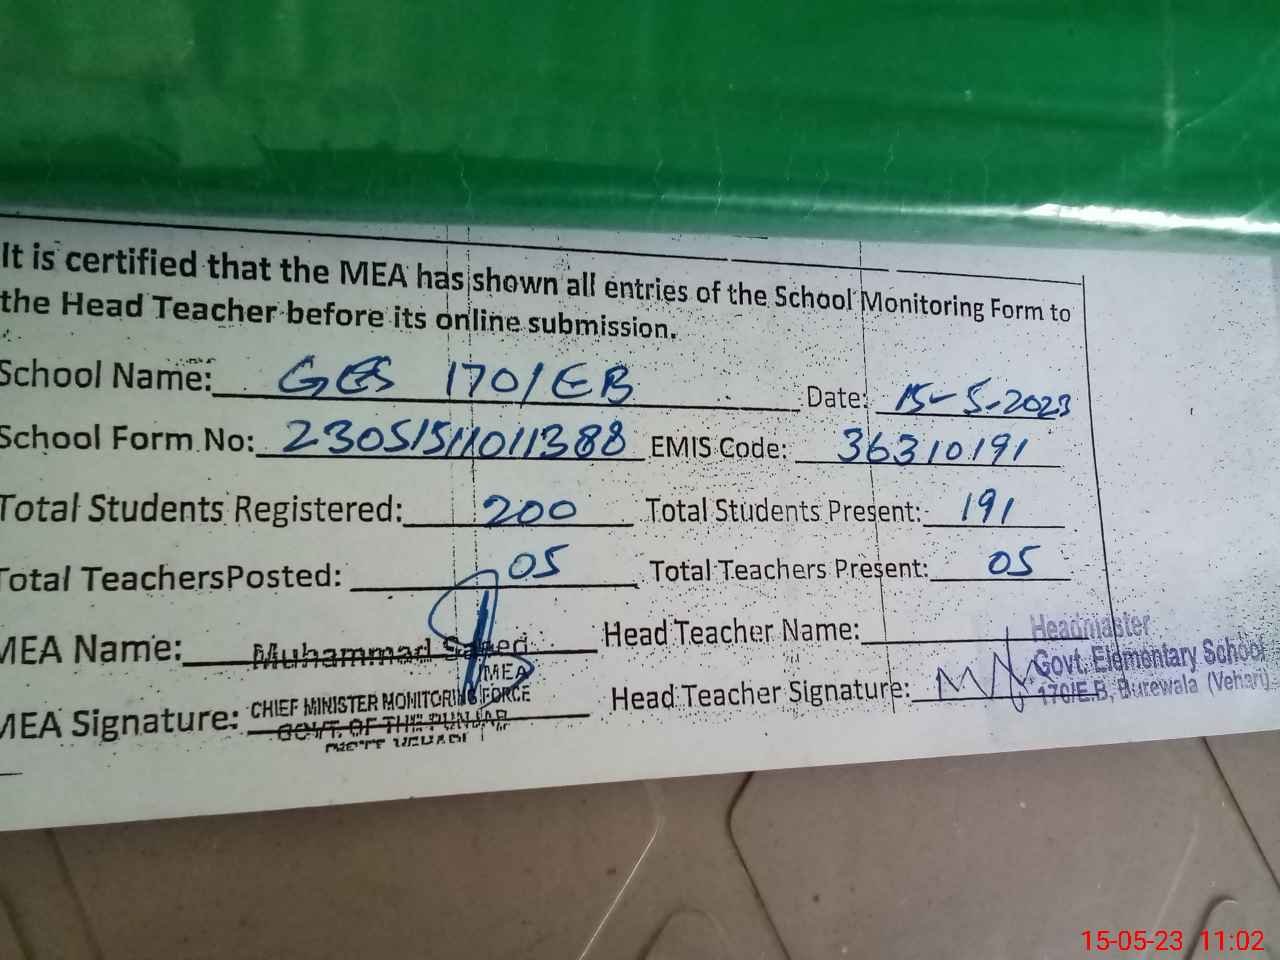 It is certified that the MEA has shown all entries of the School Monitoring Form to
the Head Teacher before its online submission.
School Name: GES 170/EB Date: 15-5-2023
School Form No: 23051511011388 EMIS Code: 36310191
Total Students Registered: 200 Total Students Present: 191
Total TeachersPosted: 05 Total Teachers Present: 05
MEA Name: Muhammad Saeed Head Teacher Name:
Headmaster
Govt. Elementary School
170/E.B, Burewala (Vehari)
MEA
MEA Signature: CHIEF MINISTER MONITORING FORCE Head Teacher Signature:
GOVT. OF THE PUNJAB
DISTT VEHARI
15-05-23 11:02